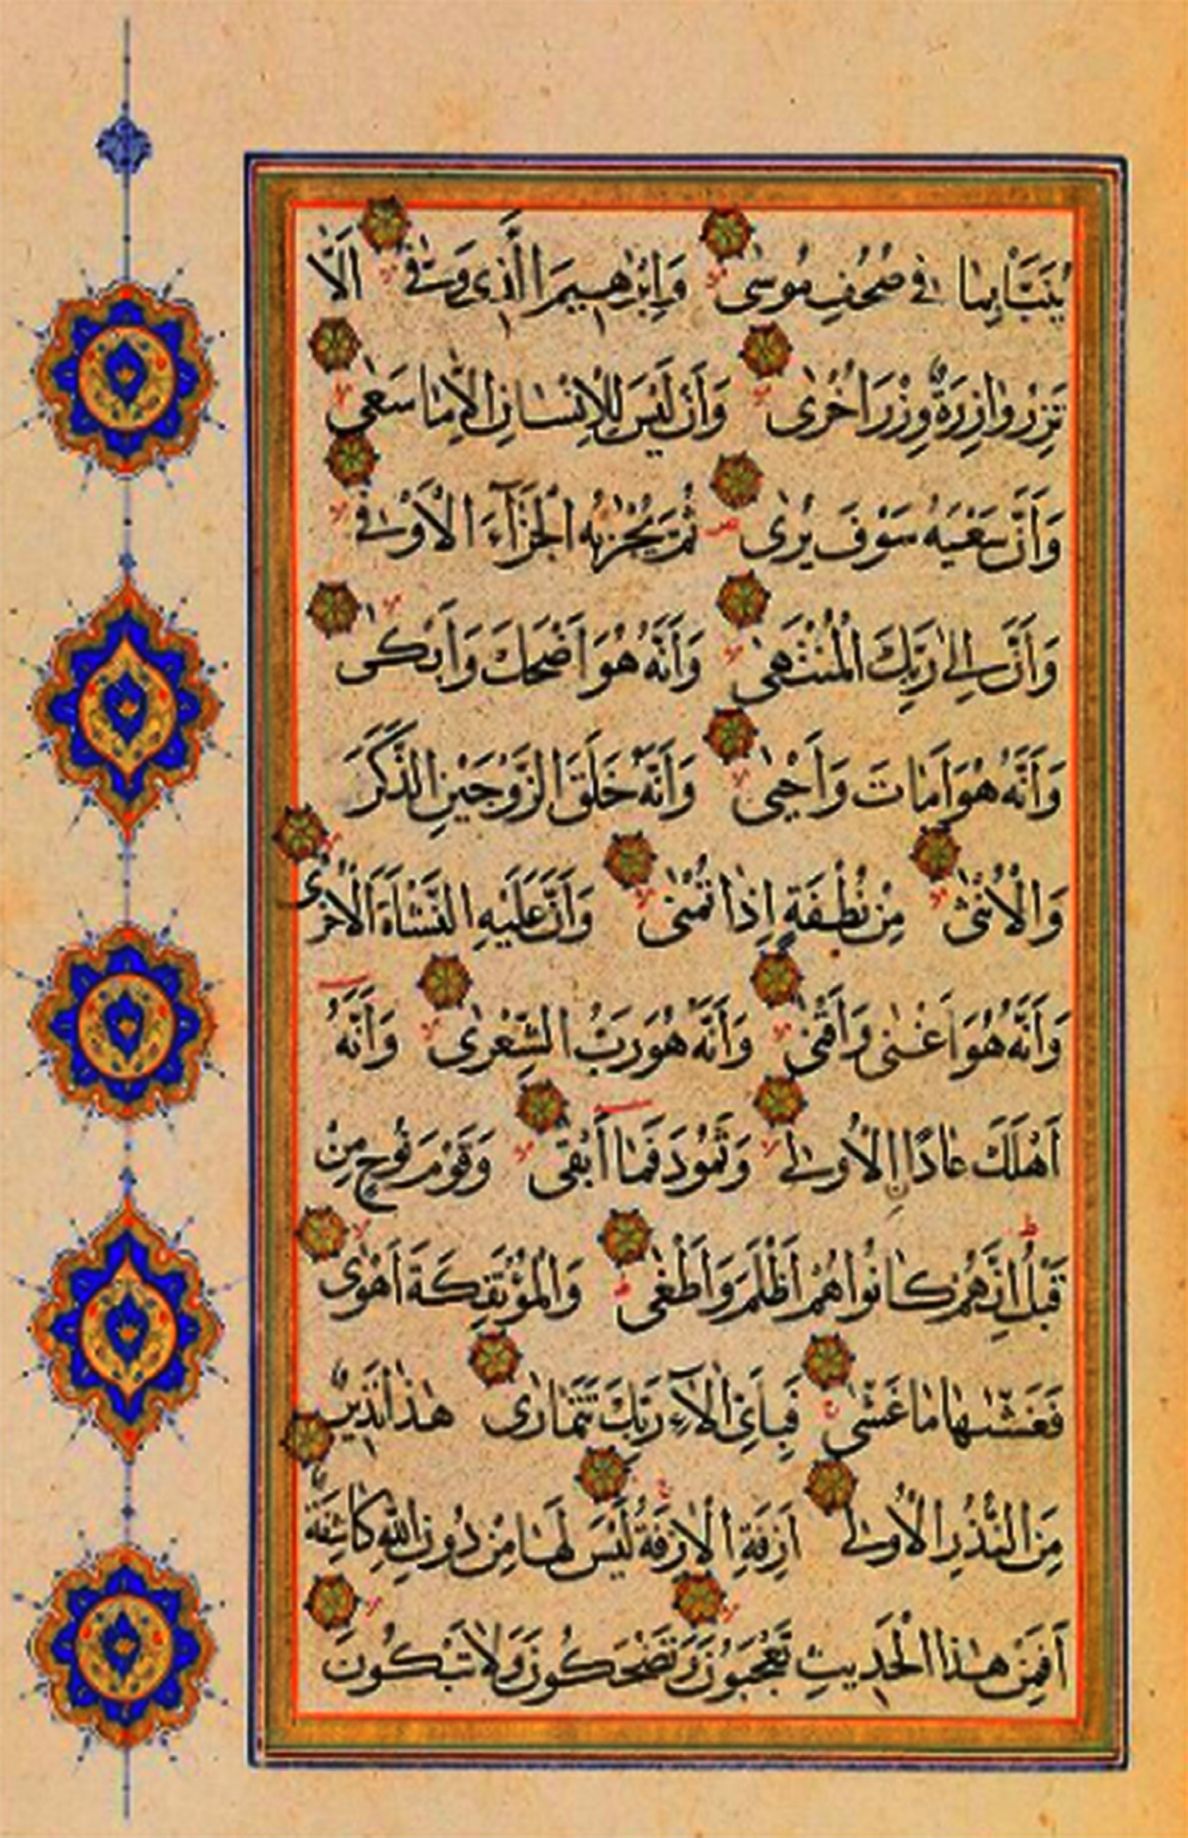 يُنَبَّأْ بِمَا فِي صُحُفِ مُوسٰى وَاِبْرٰهِيمَ الَّذِي وَفّٰى اَلَّا
تَزِرُ وَازِرَةٌ وِزْرَ اُخْرٰى وَاَنْ لَيْسَ لِلْاِنْسَانِ اِلَّا مَا سَعٰى
وَاَنَّ سَعْيَهُ سَوْفَ يُرٰى ثُمَّ يُجْزٰيهُ الْجَزَآءَ الْاَوْفٰى
وَاَنَّ اِلٰى رَبِّكَ الْمُنْتَهٰى وَاَنَّهُ هُوَ اَضْحَكَ وَاَبْكٰى
وَاَنَّهُ هُوَ اَمَاتَ وَاَحْيٰى وَاَنَّهُ خَلَقَ الزَّوْجَيْنِ الذَّكَرَ
وَالْاُنْثٰى مِنْ نُطْفَةٍ اِذَا تُمْنٰى وَاَنَّ عَلَيْهِ النَّشْاَةَ الْاُخْرٰى
وَاَنَّهُ هُوَ اَغْنٰى وَاَقْنٰى وَاَنَّهُ هُوَ رَبُّ الشِّعْرٰى وَاَنَّهُ
اَهْلَكَ عَادًا اِلْاُولٰى وَثَمُودَ فَمَا اَبْقٰى وَقَوْمَ نُوحٍ مِنْ
قَبْلُ اِنَّهُمْ كَانُوا هُمْ اَظْلَمَ وَاَطْغٰى وَالْمُؤْتَفِكَةَ اَهْوٰى
فَغَشّٰىهَا مَا غَشّٰى فَبِاَيِّ اٰلَآءِ رَبِّكَ تَتَمَارٰى هٰذَا نَذِيرٌ
مِنَ النُّذُرِ الْاُولٰى اَزِفَةِ الْاٰزِفَةُ لَيْسَ لَهَا مِنْ دُونِ اللّٰهِ كَاشِفَةٌ
اَفَمِنْ هٰذَا الْحَدِيثِ تَعْجَبُونَ وَتَضْحَكُونَ وَلَا تَبْكُونَ